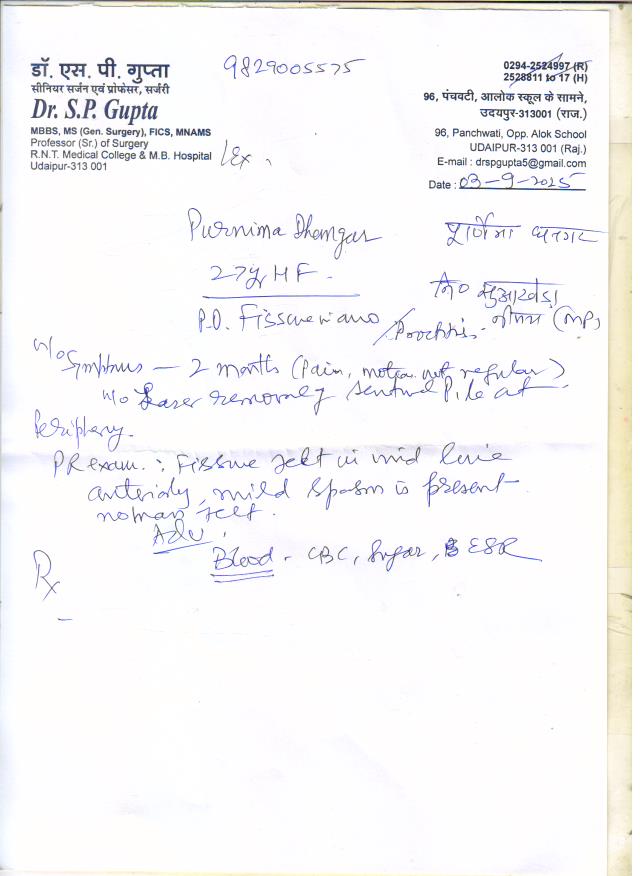 डॉ. एस. पी. गुप्ता
सीनियर सर्जन एवं प्रोफेसर, सर्जरी
Dr. S.P. Gupta
MBBS, MS (Gen. Surgery), FICS, MNAMS
Professor (Sr.) of Surgery
R.N.T. Medical College & M.B. Hospital
Udaipur-313 001
9829005575
0294-2524997 (R)
2528811 to 17 (H)
96, पंचवटी, आलोक स्कूल के सामने,
उदयपुर-313001 (राज.)
96, Panchwati, Opp. Alok School
UDAIPUR-313 001 (Raj.)
E-mail : drspgupta5@gmail.com
Date : 03-9-2025
Purnima Dhangar
पूर्णिमा धनगर
27yr HF.
नि०
(MP)
P.D. Fissure in ano
/Proctitis.
H/o Symptoms — 2 months (Pain, motion not regular)
H/o Laser removal of sentinel Pile at
Periphery.
PR exam. : Fissure felt in mid line
anteriorly, mild spasm is present
no mass felt.
Adv.
Blood - CBC, Sugar, ESR
Rx